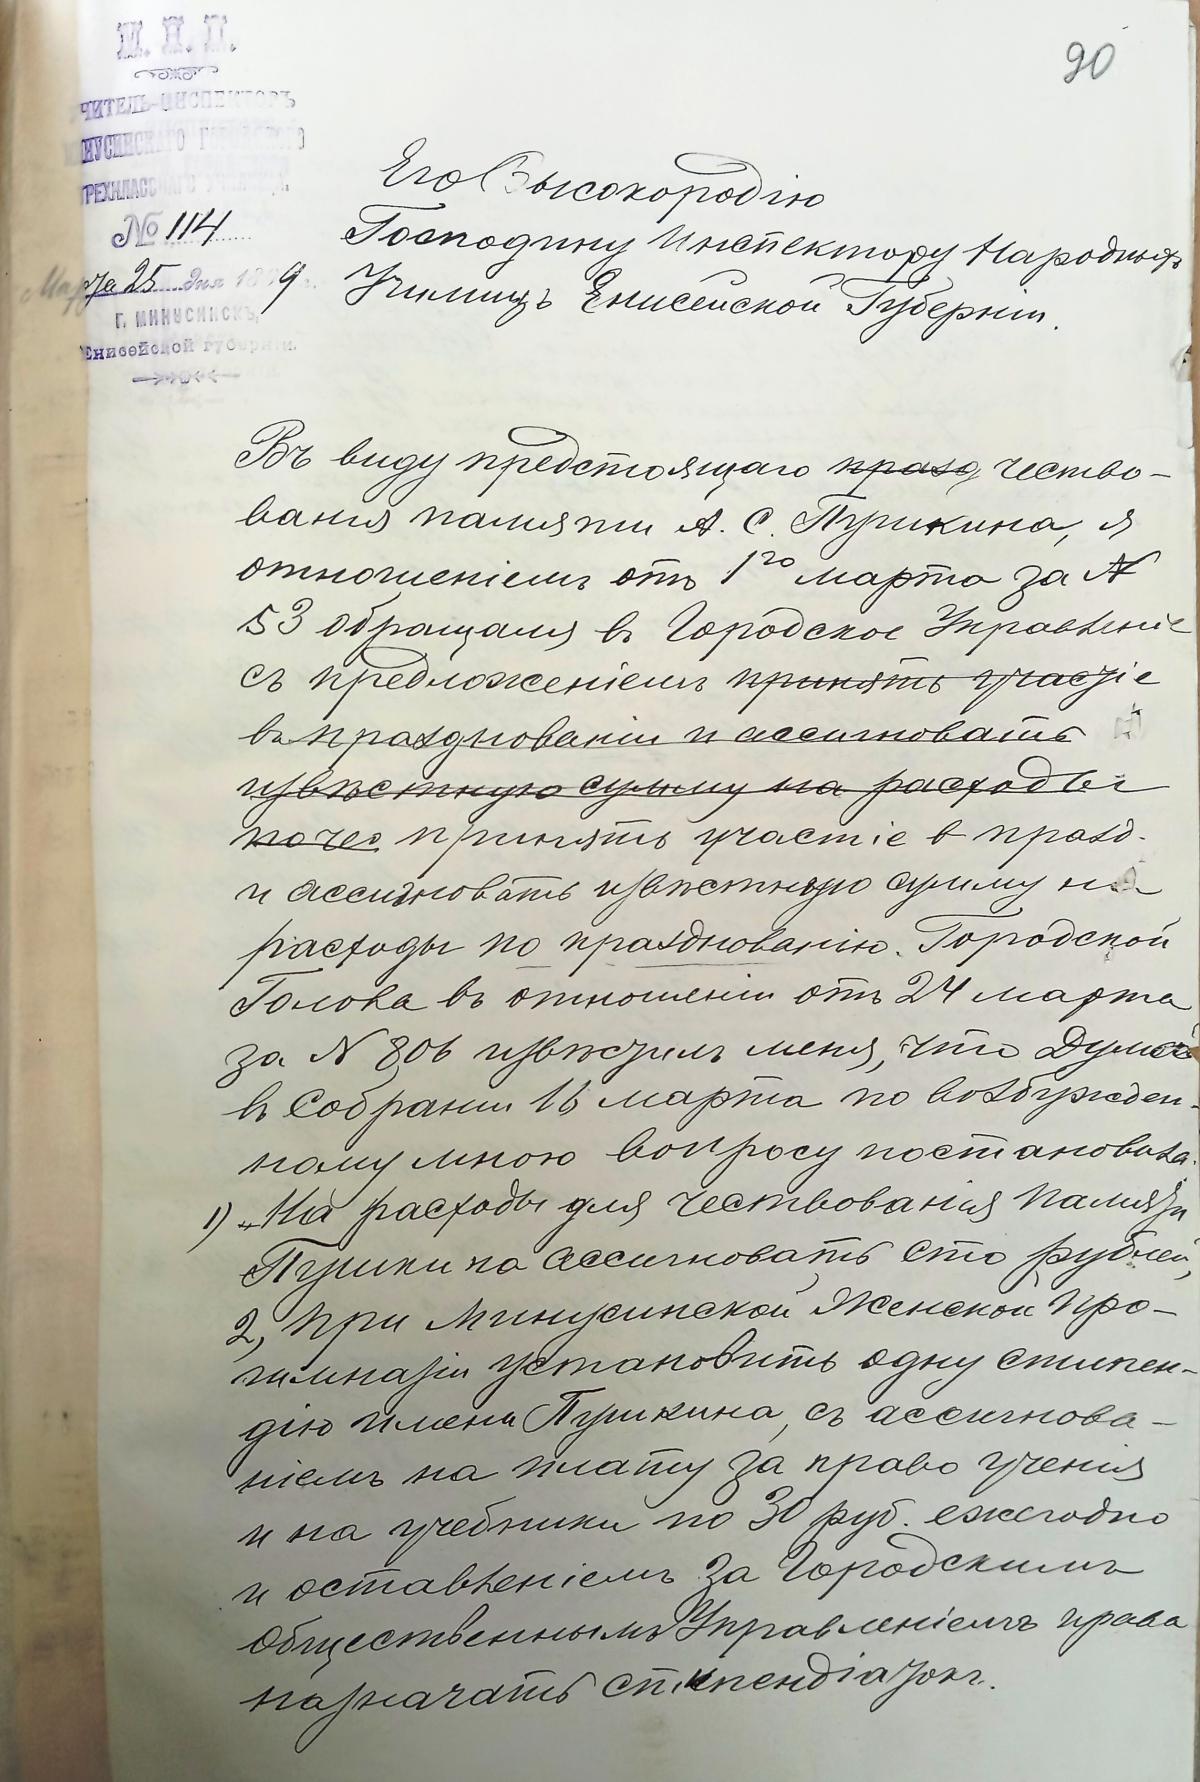 90
М. Н. П.
УЧИТЕЛЬ-ИНСПЕКТОРЪ
МИНУСИНСКАГО ГОРОДСКОГО
ТРЕХКЛАССНАГО УЧИЛИЩА.
№ 114
Марта 25 дня 1899 г.
Г. МИНУСИНСКЪ,
Енисейской губерніи.
Его Высокородію
Господину Инспектору Народныхъ
Училищъ Енисейской Губерніи.
Въ виду предстоящаго празд чество-
ванія памяти А. С. Пушкина, я
отношеніемъ отъ 1го марта за №
53 обращался въ Городское Управленіе
съ предложеніемъ принять участіе
въ празднованіи и ассигновать
извѣстную сумму на расходы
по чес принять участіе в празд.
и ассигновать извѣстную сумму на
расходы по празднованію. Городской
Голова въ отношеніи отъ 24 марта
за N 806 извѣстилъ меня, что Дума
въ Собраніи 16 марта по возбужден-
ному мною вопросу постановила.
1) „На расходы для чествованія памяти
Пушкина ассигновать сто рублей,
2, При Минусинской Женской Про-
гимназіи установить одну стипен-
дію имени Пушкина, съ ассигнова-
ніемъ на плату за право ученія
и на учебники по 30 руб. ежегодно
и оставленіемъ за Городскимъ
Общественнымъ Управленіемъ права
назначать стипендіатокъ.